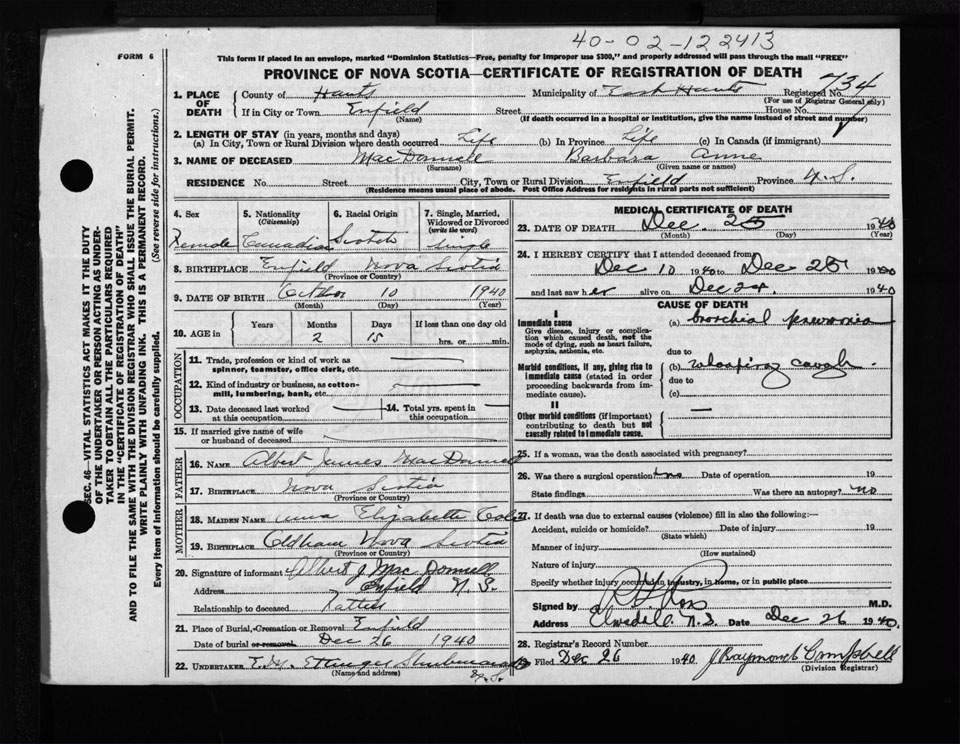 40-02-122413
FORM 6
This form if placed in an envelope, marked "Dominion Statistics—Free, penalty for improper use $300," and properly addressed will pass through the mail "FREE"
PROVINCE OF NOVA SCOTIA—CERTIFICATE OF REGISTRATION OF DEATH
734
1. PLACE OF DEATH County of Hants Municipality of East Hants Registered No.
(For use of Registrar General only)
If in City or Town Enfield Street House No.
(Name) (If death occurred in a hospital or institution, give the name instead of street and number)
2. LENGTH OF STAY (in years, months and days)
(a) In City, Town or Rural Division where death occurred Life (b) In Province Life (c) In Canada (if immigrant)
3. NAME OF DECEASED MacDonnell Barbara Anne
(Surname) (Given name or names)
RESIDENCE No. Street City, Town or Rural Division Enfield Province N.S.
(Residence means usual place of abode. Post Office Address for residents in rural parts not sufficient)
4. Sex 5. Nationality (Citizenship) 6. Racial Origin 7. Single, Married, Widowed or Divorced (write the word)
Female Canadian Scotch Single
8. BIRTHPLACE Enfield Nova Scotia
(Province or Country)
9. DATE OF BIRTH October 10 1940
(Month) (Day) (Year)
10. AGE in Years Months Days If less than one day old
2 15 hrs. or min.
OCCUPATION
11. Trade, profession or kind of work as spinner, teamster, office clerk, etc.
12. Kind of industry or business, as cotton-mill, lumbering, bank, etc.
13. Date deceased last worked at this occupation 14. Total yrs. spent in this occupation
15. If married give name of wife or husband of deceased
FATHER
16. NAME Albert James MacDonnell
17. BIRTHPLACE Nova Scotia
(Province or Country)
MOTHER
18. MAIDEN NAME Anna Elizabeth Cole
19. BIRTHPLACE Oldham Nova Scotia
(Province or Country)
20. Signature of informant Albert J MacDonnell
Address Enfield N.S.
Relationship to deceased Father
21. Place of Burial, Cremation or Removal Enfield
Date of burial or removal Dec 26 1940
22. UNDERTAKER Ettinger
N.S.
(Name and address)
MEDICAL CERTIFICATE OF DEATH
23. DATE OF DEATH Dec. 25 1940
(Month) (Day) (Year)
24. I HEREBY CERTIFY that I attended deceased from
Dec 10 1940 to Dec 25 1940
and last saw her alive on Dec 24. 1940
CAUSE OF DEATH
I
Immediate cause (a) bronchial pneumonia
Give disease, injury or complication which caused death, not the mode of dying, such as heart failure, asphyxia, asthenia, etc.
due to
Morbid conditions, if any, giving rise to immediate cause (stated in order proceeding backwards from immediate cause). (b) whooping cough
due to
(c)
II
Other morbid conditions (if important) contributing to death but not causally related to immediate cause.
25. If a woman, was the death associated with pregnancy?
26. Was there a surgical operation? no Date of operation 19
State findings Was there an autopsy? no
27. If death was due to external causes (violence) fill in also the following:—
Accident, suicide or homicide? Date of injury 19
(State which)
Manner of injury
(How sustained)
Nature of injury
Specify whether injury occurred in industry, in home, or in public place
Signed by M.D.
Address Elmsdale. N.S. Date Dec 26 1940
28. Registrar's Record Number
Filed Dec 26 1940 J Raymond Campbell
(Division Registrar)
SEC. 46—VITAL STATISTICS ACT MAKES IT THE DUTY
OF THE UNDERTAKER OR PERSON ACTING AS UNDER-
TAKER TO OBTAIN ALL THE PARTICULARS REQUIRED
IN THE "CERTIFICATE OF REGISTRATION OF DEATH"
AND TO FILE THE SAME WITH THE DIVISION REGISTRAR WHO SHALL ISSUE THE BURIAL PERMIT.
WRITE PLAINLY WITH UNFADING INK. THIS IS A PERMANENT RECORD.
Every item of information should be carefully supplied. (See reverse side for instructions.)